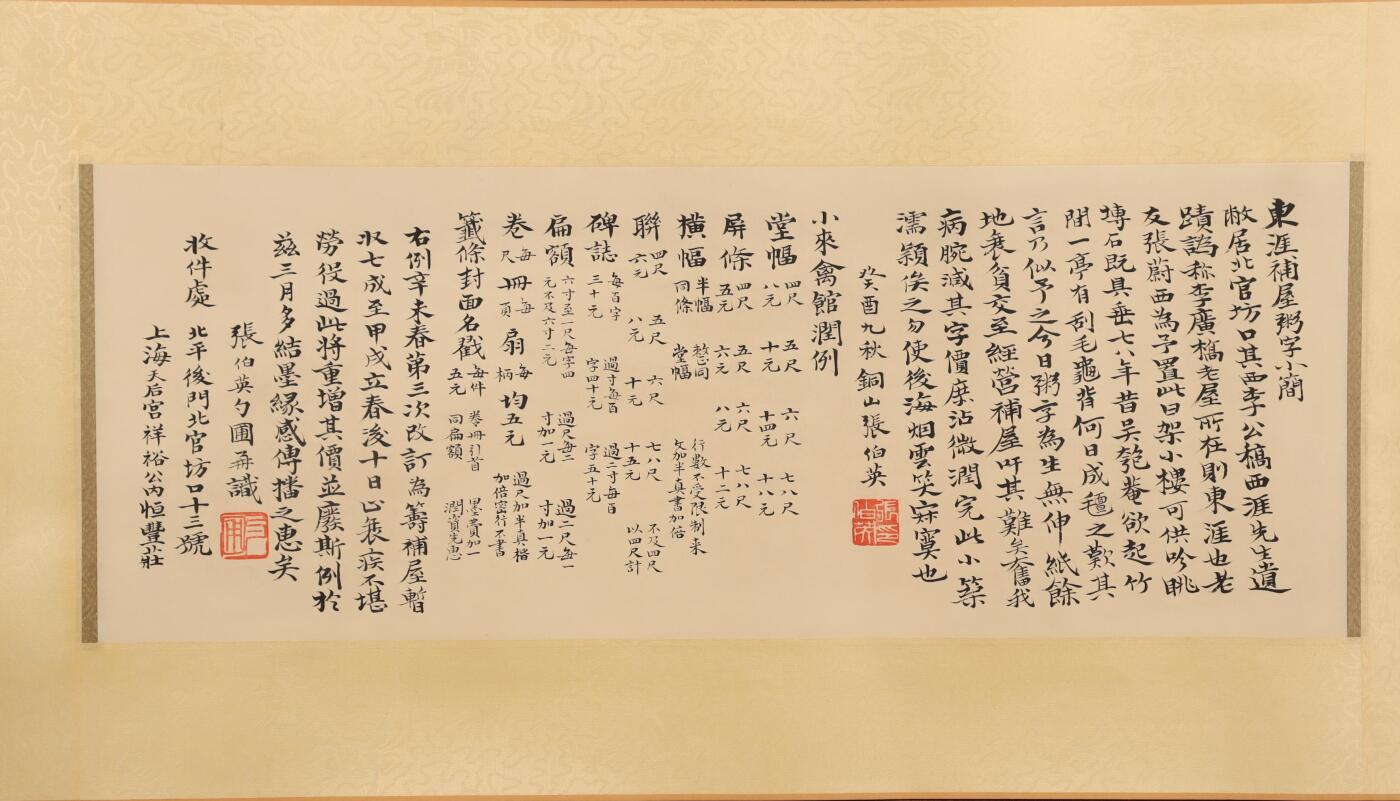 東涯補屋粥字小簡
敝居北官坊口其西李公橋西涯先生遺
蹟譌称李廣橋老屋所在則東涯也老
友張蔚西為予置此曰架小樓可供吟眺
塼石既具垂七八年昔吴匏菴欲起竹
閒一亭有刮毛龜背何日成氊之歎其
言乃似予之今日粥字為生無伸紙餘
地衰貧交至經營補屋吁其難矣奮我
病腕減其字價庶沾微潤完此小築
濡穎俟之勿使後海烟雲笑寂寞也
癸酉九秋銅山張伯英
張伯英印
小來禽館潤例
堂幅 四尺八元 五尺十元 六尺十四元 七八尺十八元
屏條 四尺五元 五尺六元 六尺八元 七八尺十二元
橫幅 半幅同條 整同堂幅 行數不受限制來文加半真書加倍
聯 四尺六元 五尺八元 六尺十元 七八尺十五元 不及四尺以四尺計
碑誌 每百字三十元 過寸每百字四十元 過二寸每百字五十元
扁額 六寸至一尺每字四元不及六寸二元 過尺每二寸加一元 過二尺每一寸加一元
卷每尺 冊每頁 扇每柄 均五元 過尺加半真楷加倍密行不書
籤條封面名戳 每件五元 卷冊引首同扁額 墨費加一潤資先惠
右例辛未春第三次改訂為籌補屋暫
収七成至甲戌立春後十日止衰疾不堪
勞役過此将重增其價並廢斯例於
茲三月多結墨緣感傳播之惠矣
張伯英勺圃再識
勺圃
收件處 北平後門北官坊口十三號
上海天后宮祥裕公內恒豐北莊